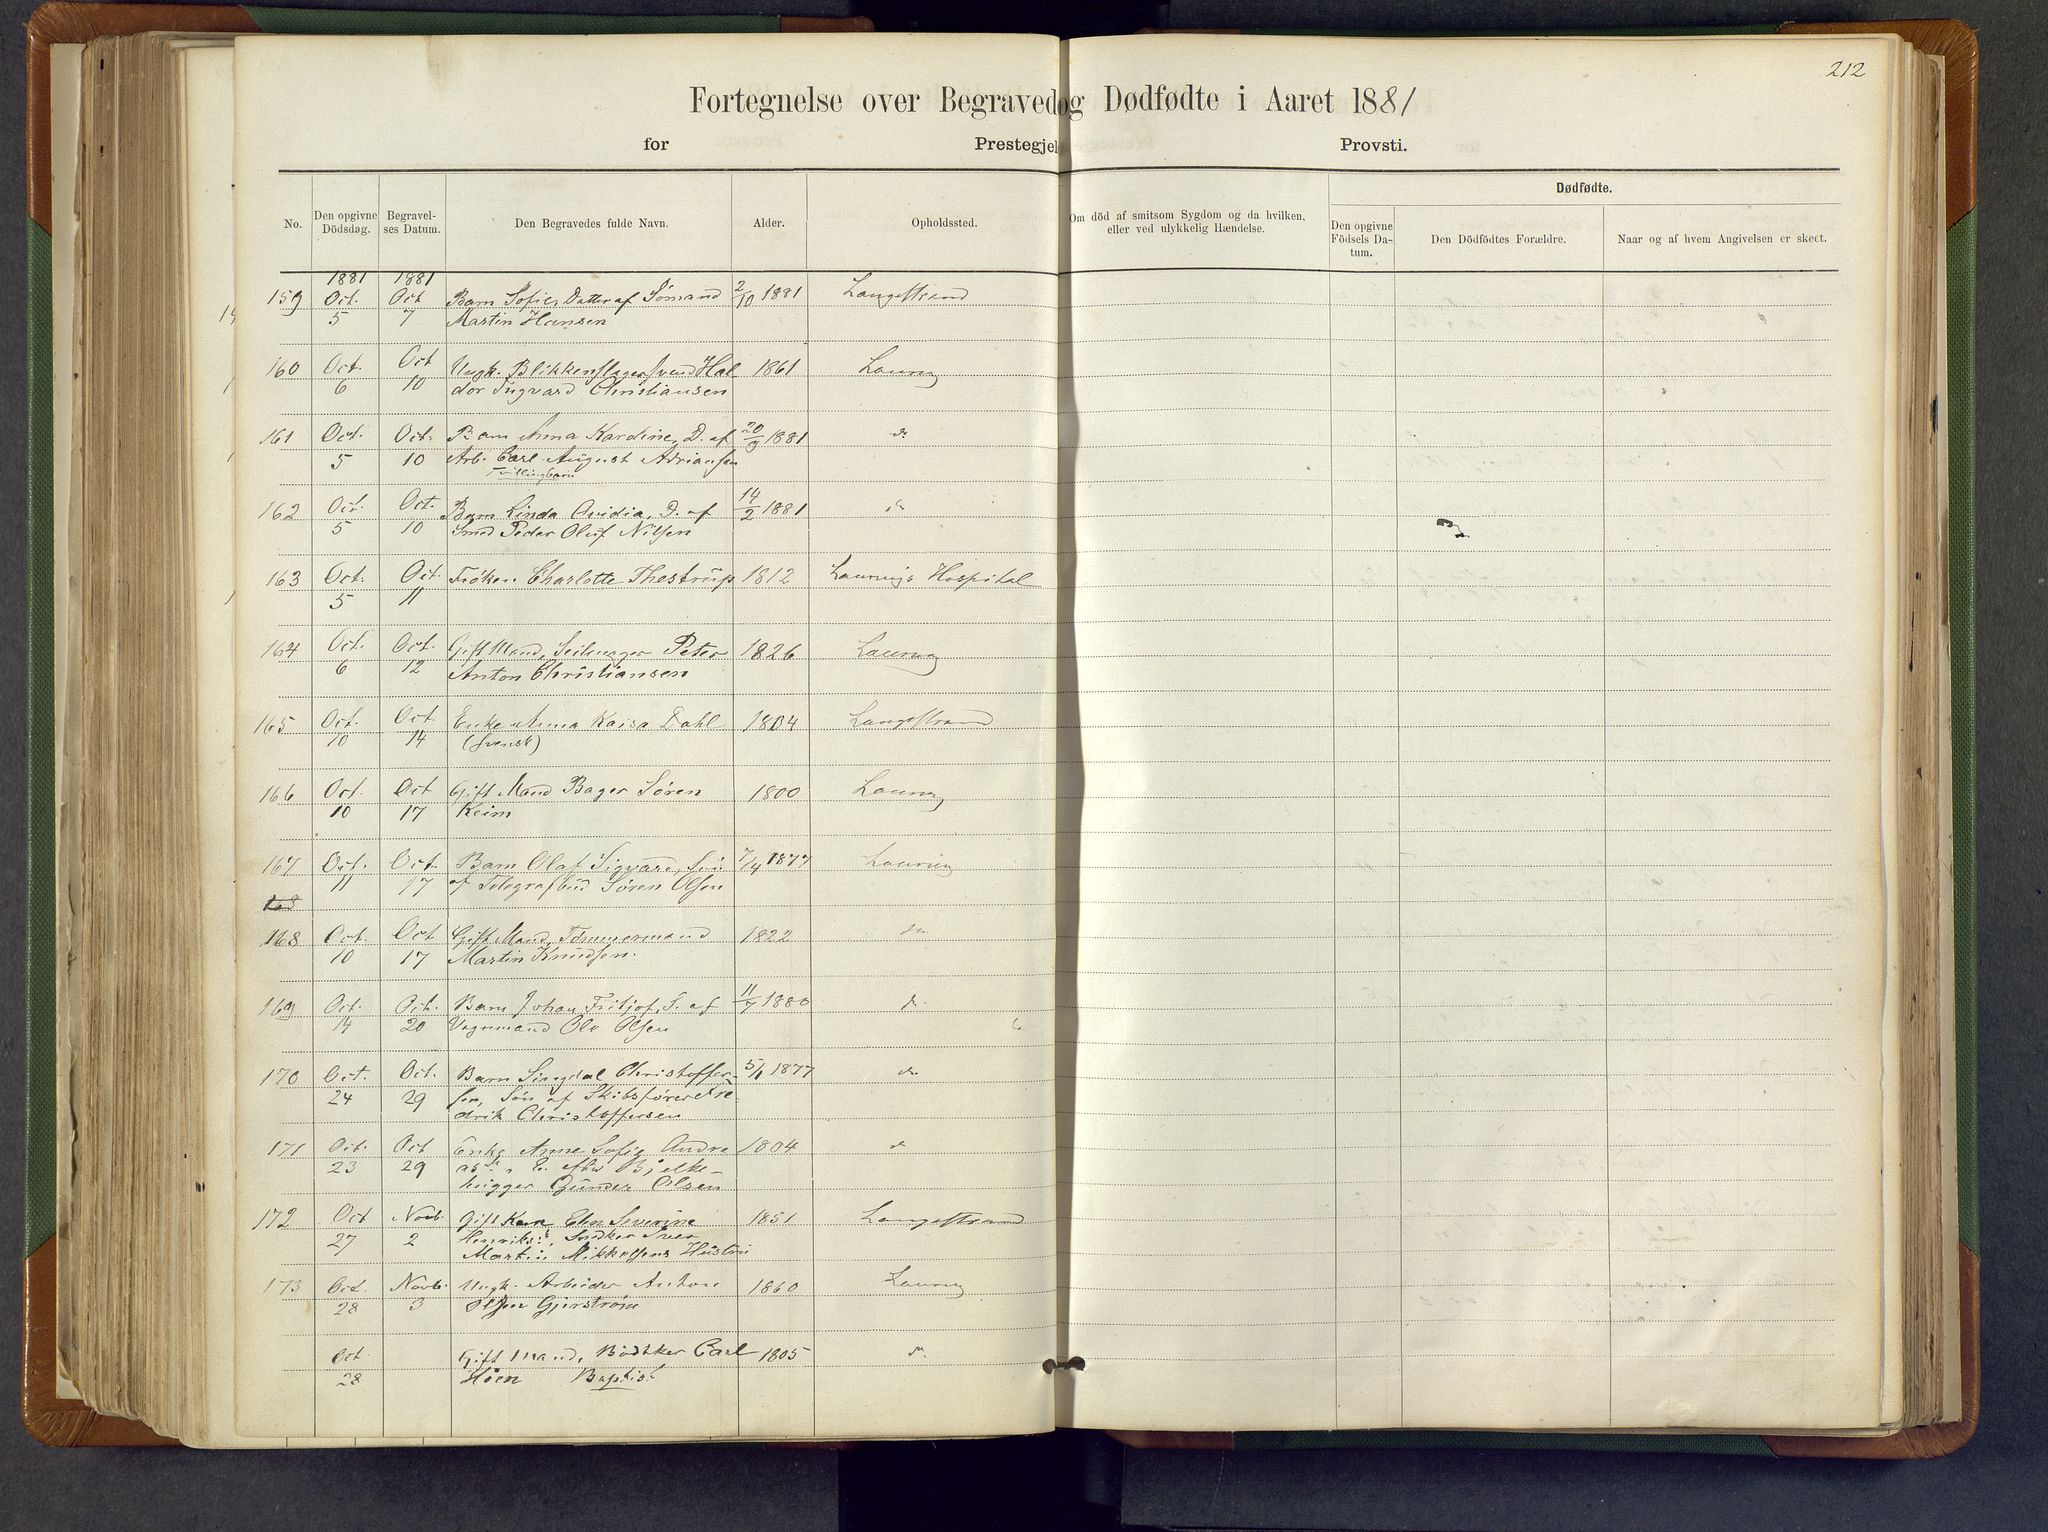 212
Fortegnelse over Begravede og Dødfødte i Aaret 1881
for Prestegjel Provsti.
No. Den opgivne Dödsdag. Begravelses Datum. Den Begravedes fulde Navn. Alder. Opholdssted. Om död af smitsom Sygdom og da hvilken, eller ved ulykkelig Hændelse. Dødfødte. Den opgivne Födsels Datum. Den Dödfödtes Forældre. Naar og af hvem Angivelsen er skeet.
1881 1881
159 Oct. Oct Barn Sofie, Datter af Sømand 2/10 1881 Langestrand
5 7 Martin Hansen
160 Oct. Oct Ungk. Blikkenslagersvend Hal 1861 Laurvig
6 10 dor Ingvard Christiansen
161 Oct. Oct. Barn Anna Kardine, D. af 20/9 1881 do
5 10 Arb. Carl August Adriansen
Tvillingbarn
162 Oct. Oct. Barn Linda Ovidia, D. af 14/2 1881 do
5 10 Smed Peder Oluf Nilsen
163 Oct. Oct. Frøken Charlotte Thestrup 1812 Laurvigs Hospital
5 11
164 Oct. Oct. Gift Mand, Seilmager Peter 1826 Laurvig
6 12 Anton Christiansen
165 Oct. Oct. Enke Anna Kaisa Dahl 1804 Langestrand
10 14 (Svensk)
166 Oct. Oct Gift Mand Bager Søren 1800 Laurvig
10 17 Keim
167 Oct. Oct. Barn Olaf Sigvard, Søn 7/4 1877 Laurvig
11 17 af Telegrafbud Søren Olsen
168
168 Oct. Oct Gift Mand, Tømmermand 1822 do
10 17 Martin Knudsen.
169 Oct. Oct. Barn Johan Fritjof, S. af 11/7 1880 do
14 20 Vognmand Ole Olsen
170 Oct. Oct. Barn Singdal Christoffer- 5/1 1877 do
24 29 sen, Søn af Skibsfører Fre
drik Christoffersen
171 Oct. Oct Enke Anne Sofie Andre 1804 do
23 29 asdt, E. efter Bjelke-
hugger Gunder Olsen
172 Oct Novb. Gift Kone Elen Severine 1851 Langestrand
27 2 Henriksd, Snedker Iver
Martin Mikkelsens Hustru
173 Oct. Novb. Ungk. Arbeider Anton 1860 Laurvig
28 3 Olsen Gjerstrøm
Oct. Gift Mand, Bødtker Carl 1805 do
28 Høen Baptist